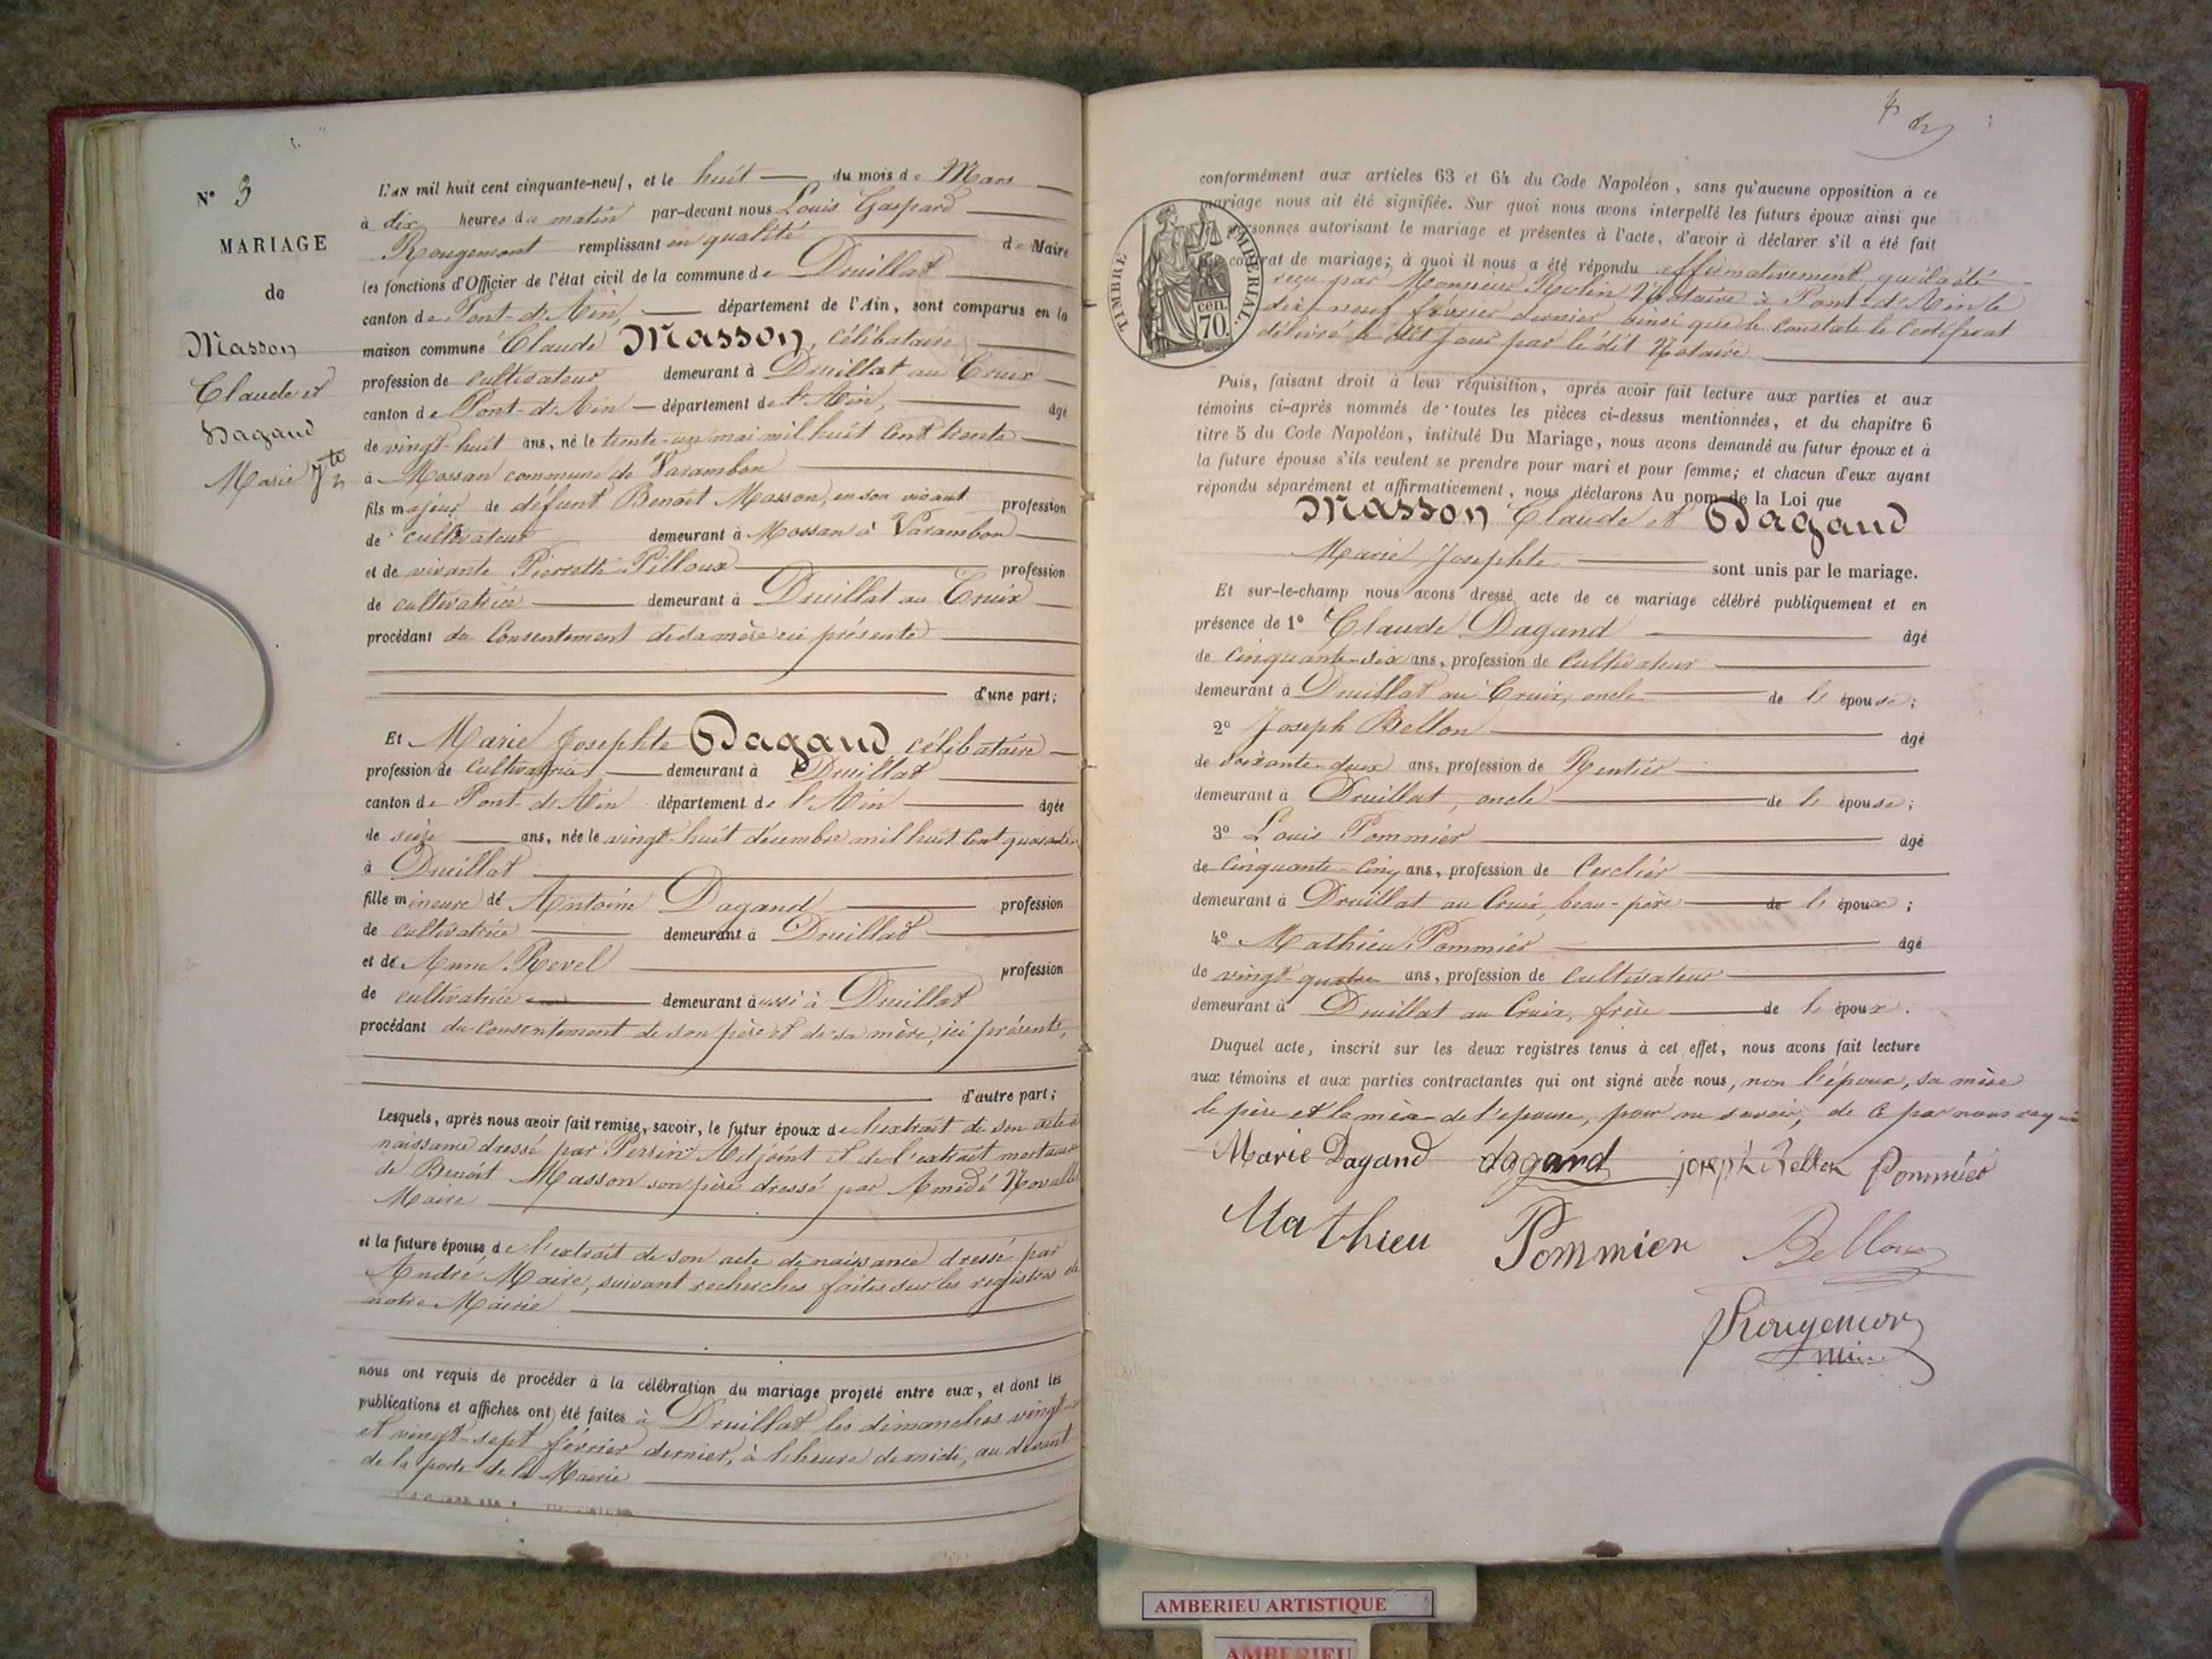 N° 3
MARIAGE
de
Masson
Claude et
Dagand
Marie Jte
L'AN mil huit cent cinquante-neuf, et le huit du mois de Mars
à dix heures du matin par-devant nous Louis Gaspard
Rougemont remplissant en qualité de Maire
les fonctions d'Officier de l'état civil de la commune de Druillat
canton de Pont-d'Ain, département de l'Ain, sont comparus en la
maison commune Claude Masson, célibataire
profession de cultivateur demeurant à Druillat au Cruix
canton de Pont-d'Ain département de l'Ain, âgé
de vingt-huit ans, né le trente-un mai mil huit cent trente
à Mossan commune de Varambon
fils majeur de défunt Benoît Masson, en son vivant profession
de cultivateur demeurant à Mossan à Varambon
et de vivante Pierrette Pilloux profession
de cultivatrice demeurant à Druillat au Cruix
procédant du consentement de sa mère ici présente
d'une part;
Et Marie Josephte Dagand célibataire
profession de cultivatrice, demeurant à Druillat
canton de Pont-d'Ain département de l'Ain âgée
de seize ans, née le vingt-huit décembre mil huit cent quarante
à Druillat
fille mineure de Antoine Dagand profession
de cultivatrice demeurant à Druillat
et de Anne Revel profession
de cultivatrice demeurant aussi à Druillat
procédant du consentement de son père et de sa mère, ici présents,
d'autre part;
Lesquels, après nous avoir fait remise, savoir, le futur époux de l'extrait de son acte de
naissance dressé par Perrin Adjoint et de l'extrait mortuaire
de Benoît Masson son père dressé par Amédé
Maire
et la future épouse, de l'extrait de son acte de naissance dressé par
André Maire, suivant recherches faites sur les registres de
notre Mairie
nous ont requis de procéder à la célébration du mariage projeté entre eux, et dont les
publications et affiches ont été faites à Druillat les dimanches vingt
et vingt-sept février dernier, à l'heure de midi, au devant
de la porte de la Mairie
conformément aux articles 63 et 64 du Code Napoléon, sans qu'aucune opposition à ce
mariage nous ait été signifiée. Sur quoi nous avons interpellé les futurs époux ainsi que
personnes autorisant le mariage et présentes à l'acte, d'avoir à déclarer s'il a été fait
contrat de mariage; à quoi il nous a été répondu affirmativement qu'il a été
reçu par Monsieur Rolin Notaire à Pont-d'Ain le
dix neuf février dernier ainsi que le constate le Certificat
délivré le dit jour par le dit Notaire
TIMBRE IMPERIAL.
cen.
70.
Puis, faisant droit à leur réquisition, après avoir fait lecture aux parties et aux
témoins ci-après nommés de toutes les pièces ci-dessus mentionnées, et du chapitre 6
titre 5 du Code Napoléon, intitulé Du Mariage, nous avons demandé au futur époux et à
la future épouse s'ils veulent se prendre pour mari et pour femme; et chacun d'eux ayant
répondu séparément et affirmativement, nous déclarons Au nom de la Loi que
Masson Claude et Dagand
Marie Josephte sont unis par le mariage.
Et sur-le-champ nous avons dressé acte de ce mariage célébré publiquement et en
présence de 1° Claude Dagand âgé
de cinquante-six ans, profession de cultivateur
demeurant à Druillat au Cruix, oncle de l'épouse;
2° Joseph Bellon âgé
de soixante-deux ans, profession de Rentier
demeurant à Druillat, oncle de l'épouse;
3° Louis Pommier âgé
de cinquante-cinq ans, profession de Cerclier
demeurant à Druillat au Cruix, beau-père de l'époux;
4° Mathieu Pommier âgé
de vingt-quatre ans, profession de cultivateur
demeurant à Druillat au Cruix, frère de l'époux.
Duquel acte, inscrit sur les deux registres tenus à cet effet, nous avons fait lecture
aux témoins et aux parties contractantes qui ont signé avec nous, non l'époux, sa mère
le père et la mère de l'épouse, pour ne savoir, de ce par nous requis
Marie Dagand dagand joseph Bellon Pommier
Mathieu Pommier Bellon
Rougemont
AMBERIEU ARTISTIQUE
AMBERIEU